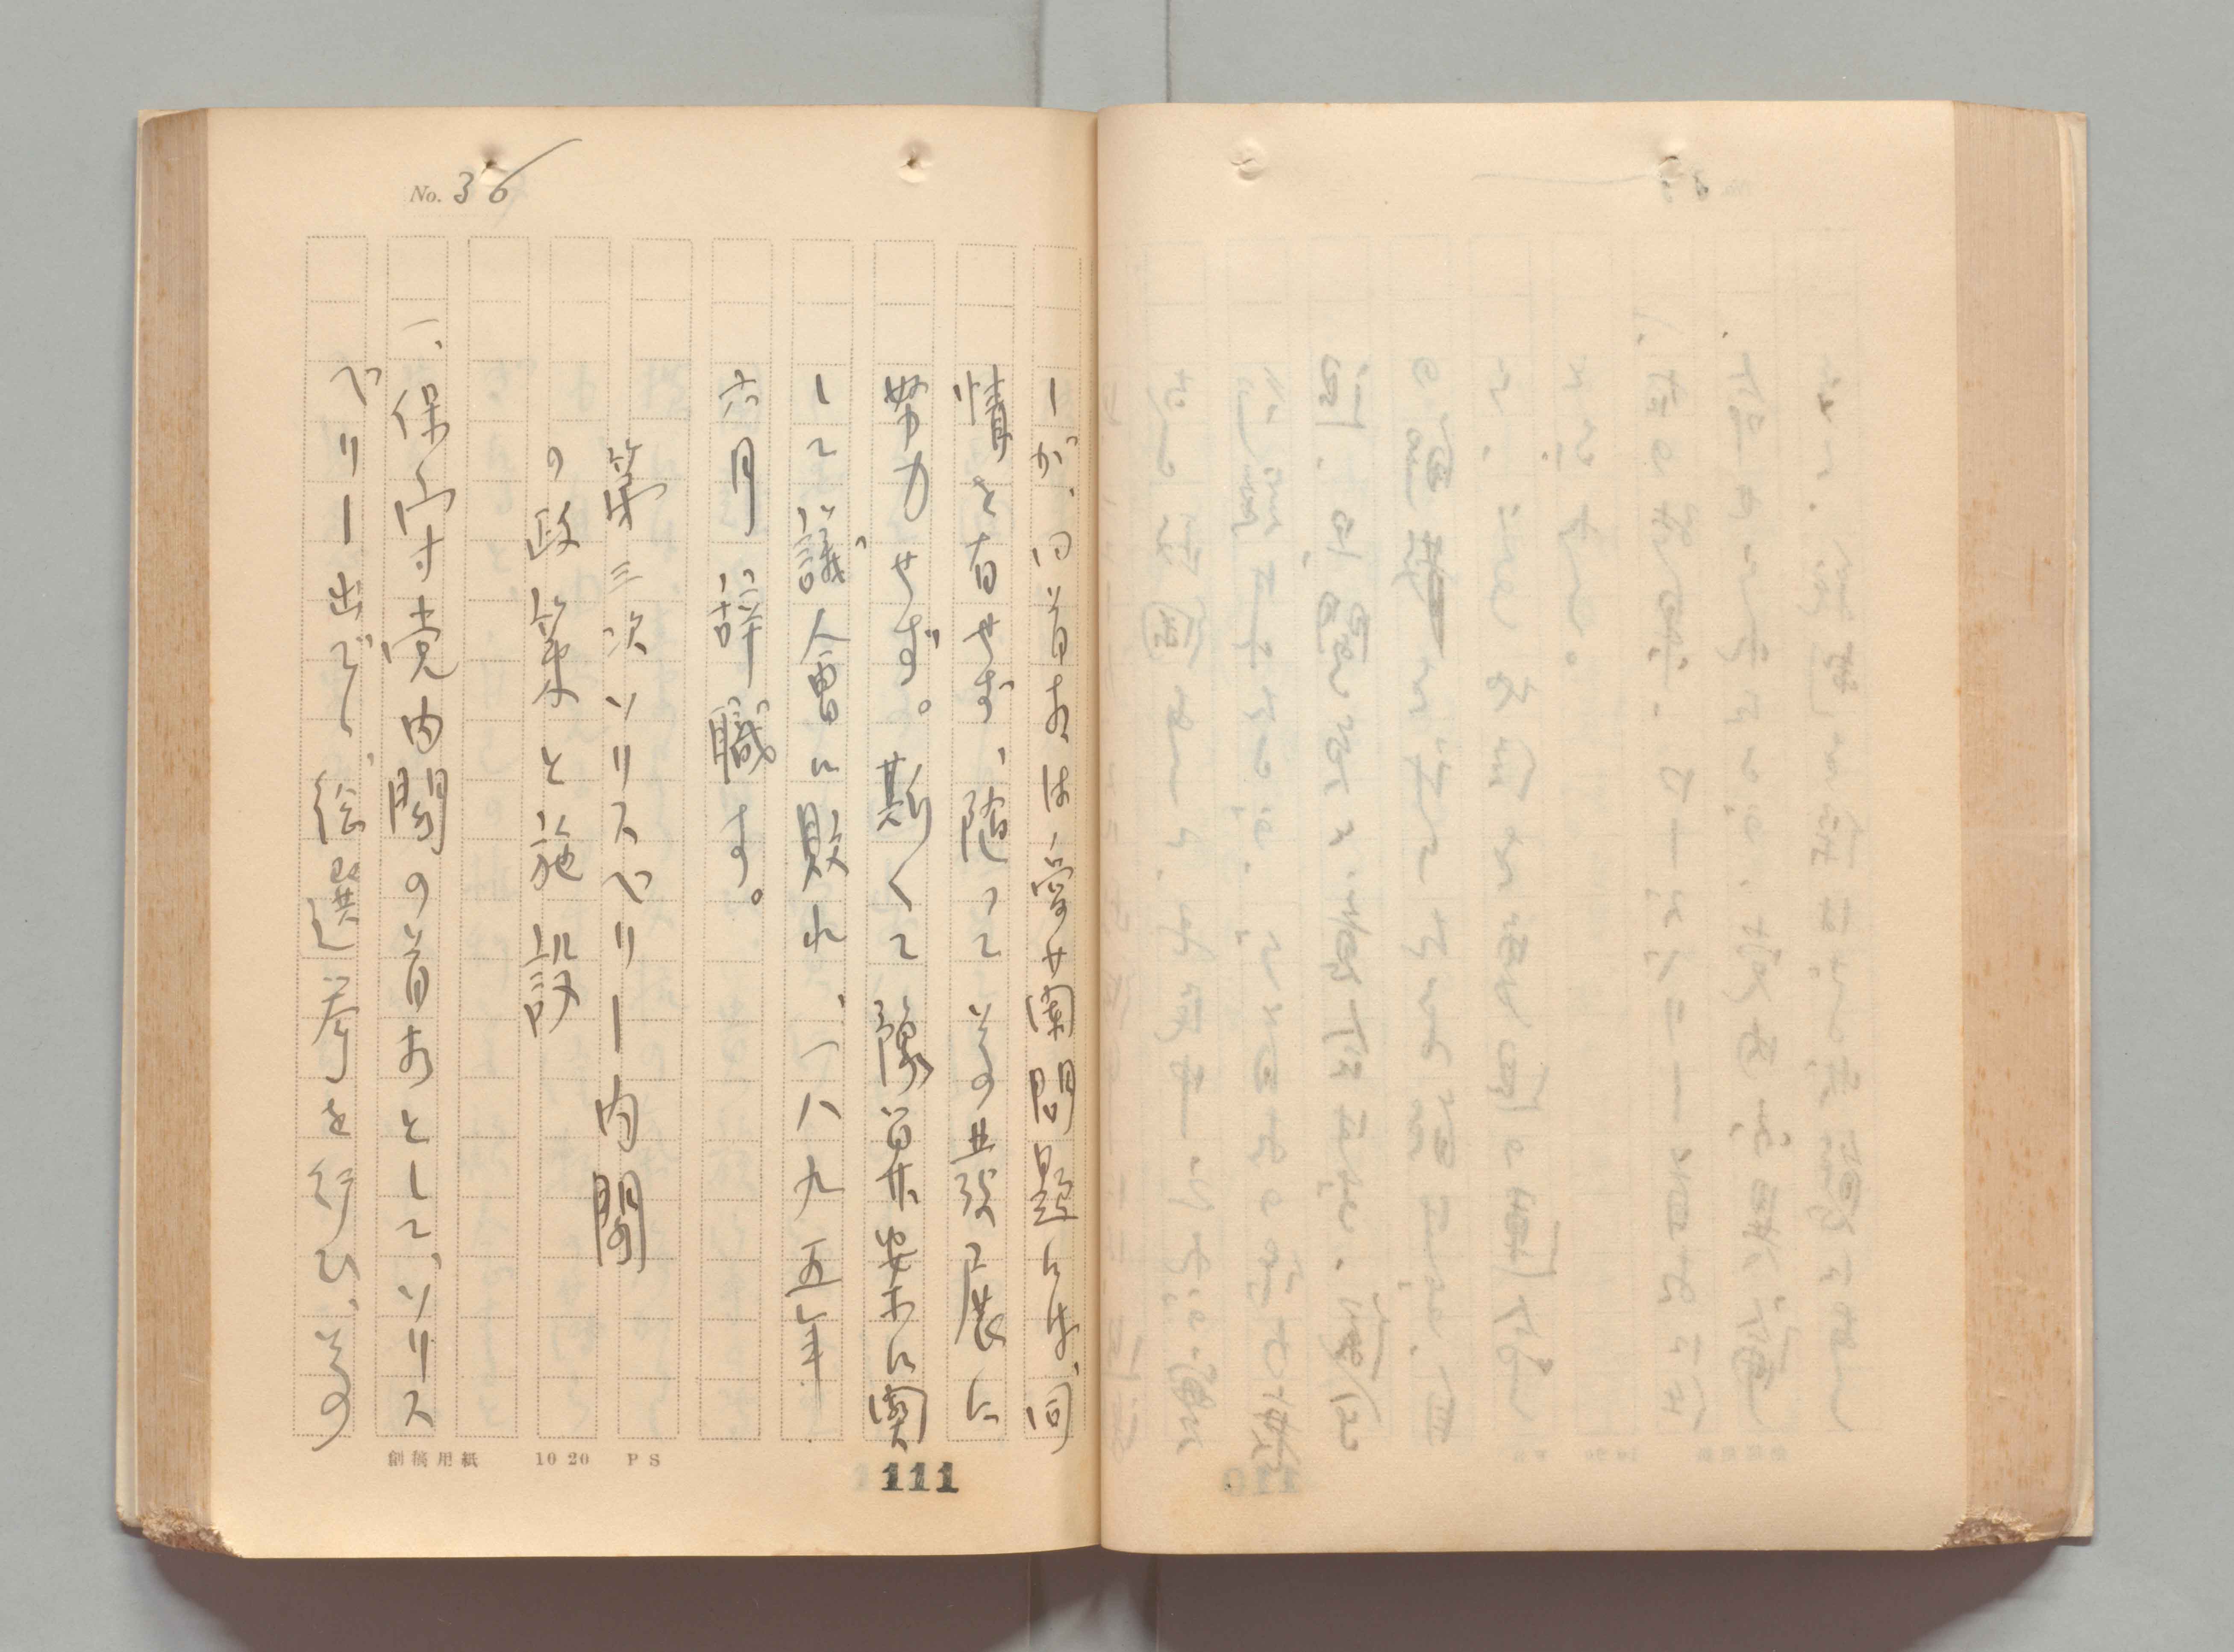 No. 36
しが、同首相は愛蘭問題には、同
情を有せず、随ってその発展に
努力せず。斯くて豫算案に関
して議会に敗れ、一八九五年
六月辞職す。
第三次ソリスベリー内閣
の政策と施設
一、保守党内閣の首相として、ソリス
ベリー出で、総選挙を行ひ、その
創稿用紙 10 20 PS
111